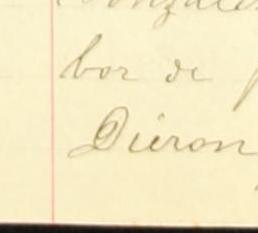 Gonzalez
bor de
Dieron